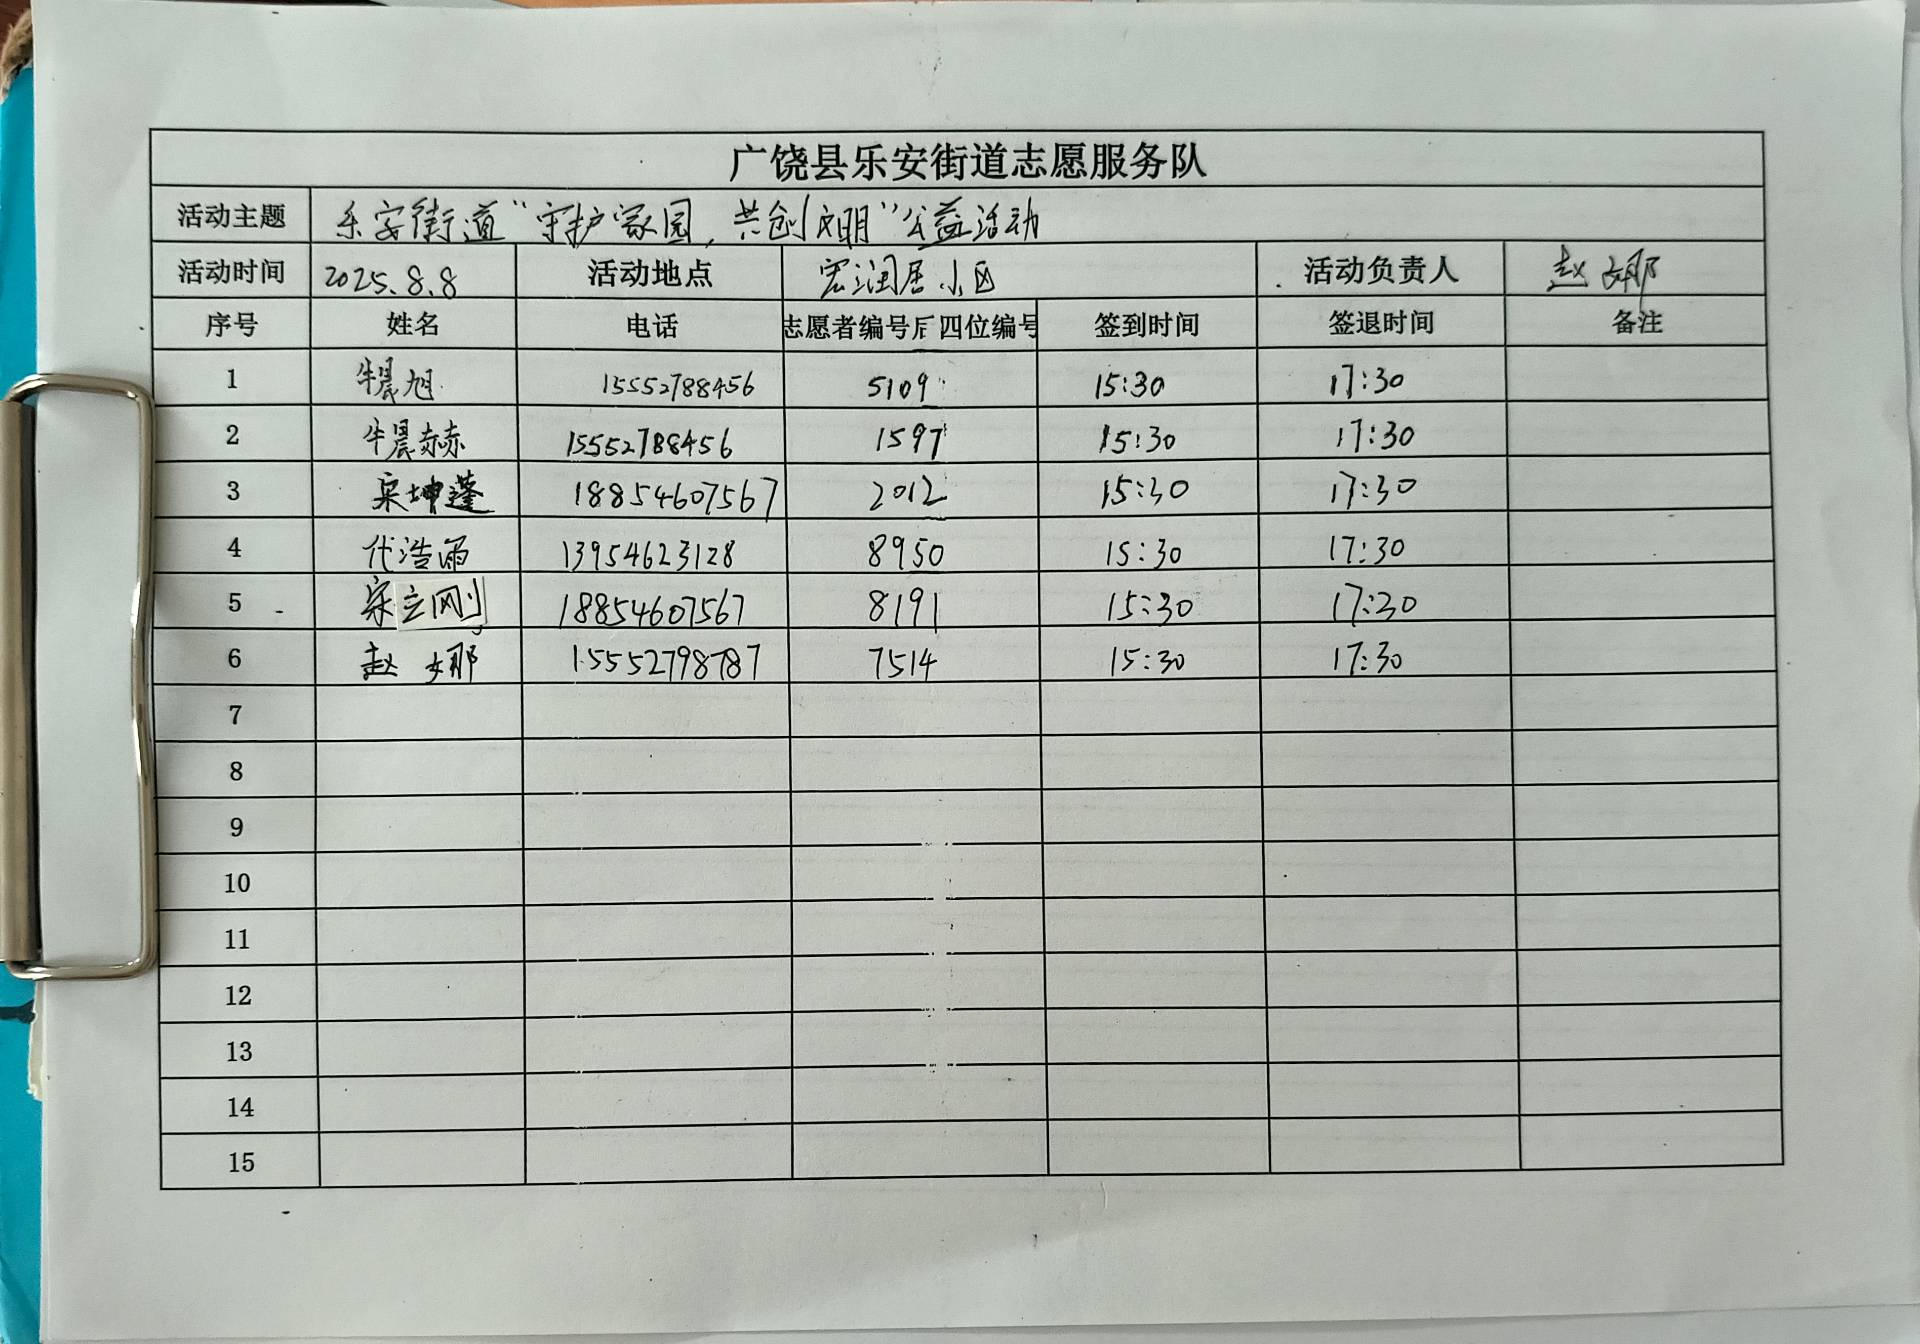 广饶县乐安街道志愿服务队
活动主题 乐安街道“守护家园，共创文明”公益活动
活动时间 2025.8.8 活动地点 宏润居小区 活动负责人 赵娜
序号 姓名 电话 志愿者编号后四位编号 签到时间 签退时间 备注
1 牛晨旭 15552788456 5109 15:30 17:30
2 牛晨赫 15552788456 1597 15:30 17:30
3 宋坤蓬 18854607567 2012 15:30 17:30
4 代浩雨 13954623128 8950 15:30 17:30
5 宋立刚 18854607567 8191 15:30 17:30
6 赵娜 15552798787 7514 15:30 17:30
7
8
9
10
11
12
13
14
15